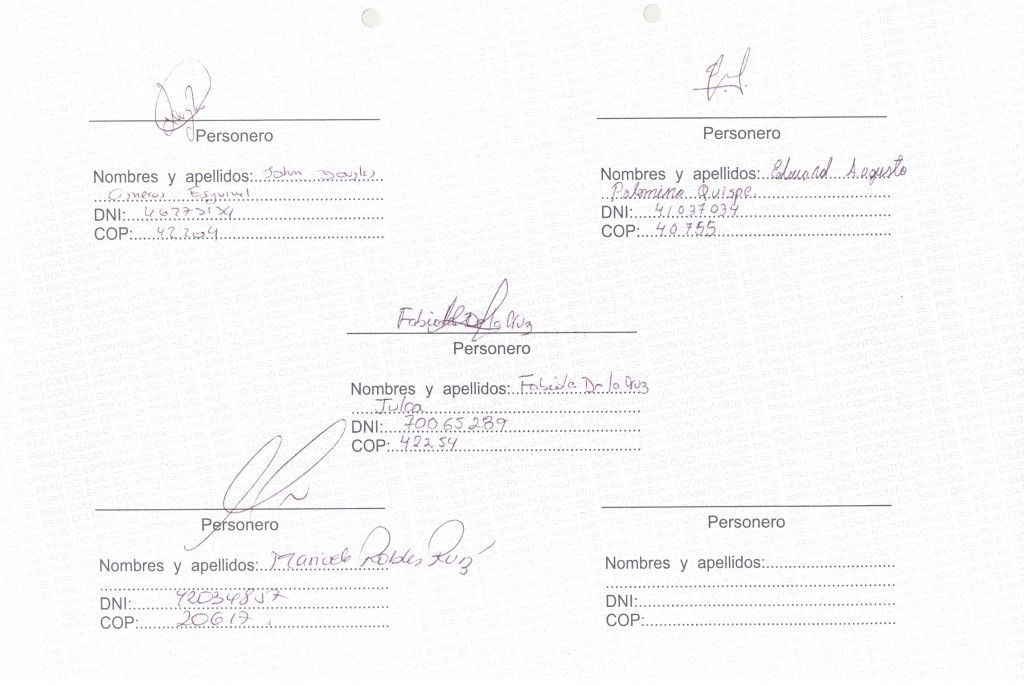 Personero
Nombres y apellidos: John Douglas
Cisneros Esquivel
DNI:
COP: 42204
Personero
Nombres y apellidos: Eduard Augusto
Palomino Quispe
DNI: 41037034
COP: 40755
Fabiola De la Cruz
Personero
Nombres y apellidos: Fabiola De la Cruz
Julca
DNI: 70065289
COP: 42254
Personero
Nombres y apellidos: Maricela Robles Ruiz
DNI:
COP: 20617
Personero
Nombres y apellidos:
DNI:
COP:
COLEGIO ODONTOLOGICO DEL PERU